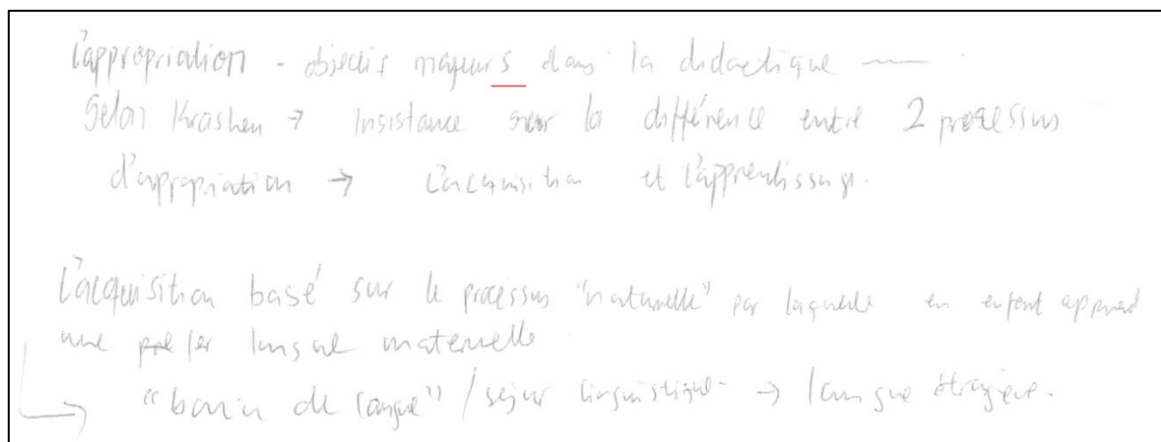 L'appropriation - objectif majeurs dans la didactique —
Selon Krashen → Insistance sur la différence entre 2 processus
d'apropriation → L'acquisition et l'apprentissage.
L'acquisition basé sur le processus "naturelle" par laquelle en enfant apprend
une 1er langue maternelle
"bain de langue" / séjour linguistique → langue étragère.